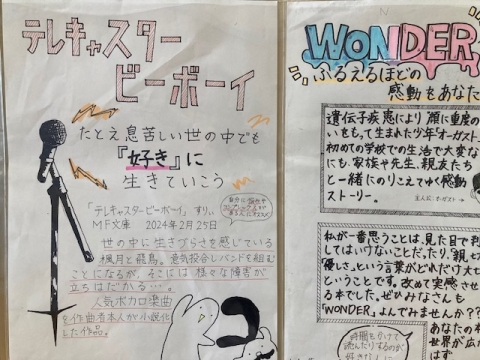 テレキャスター
ビーボーイ
たとえ息苦しい世の中でも
『好き』に
生きていこう
「テレキャスタービーボーイ」すりぃ
MF文庫 2024年2月25日
世の中に生きづらさを感じている
楓月と飛鳥。意気投合しバンドを組む
ことになるが、そこには様々な障害が
立ちはだかる…。
人気ボカロ楽曲
を作曲者本人が小説化
した作品。
WONDER
ふるえるほどの
感動をあなた
遺伝子疾患により顔に重度の
いをもって生まれた少年"オーガスト
初めての学校での生活で大変な
にも、家族や先生、親友たち
と一緒にのりこえてゆく感動
ストーリー。
主人公：オーガスト
私が一番思うことは、見た目で判
してはいけないことだったり、"親切
"優しさ"という言葉がどれだけ大切
ということです。改めて実感させ
る本でした。ぜひみなさんも
「WONDER」よんでみませんか??
あなたの
世界が広が
はず
時間をかけて
読んだりするのが
好きだ